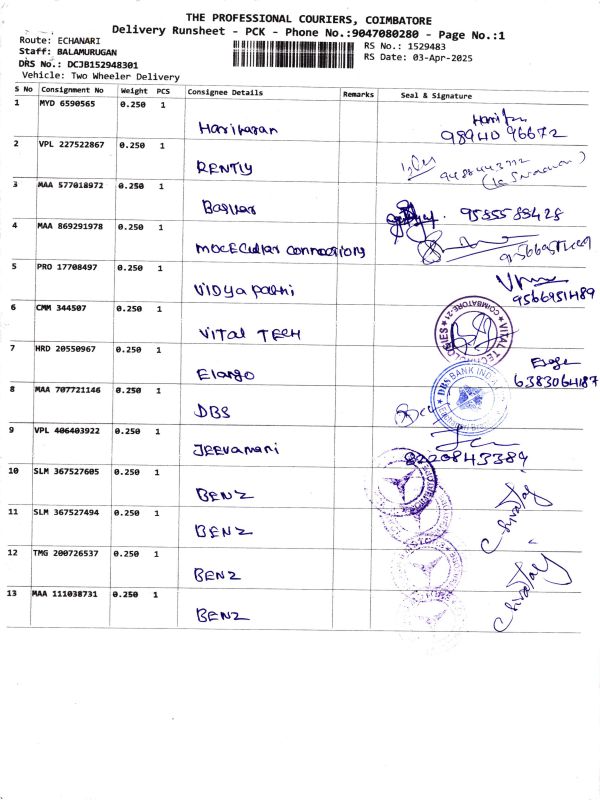 THE PROFESSIONAL COURIERS, COIMBATORE
Delivery Runsheet - PCK - Phone No.:9047080280 - Page No.:1
Route: ECHANARI
RS No.: 1529483
Staff: BALAMURUGAN
RS Date: 03-Apr-2025
DRS No.: DCJB152948301
Vehicle: Two Wheeler Delivery
S No Consignment No Weight PCS Consignee Details Remarks Seal & Signature
1 MYD 6590565 0.250 1 Hariharan
2 VPL 227522867 0.250 1 RENTLY
3 MAA 577018972 0.250 1 9585588428
4 MAA 869291978 0.250 1 MOLECULAR connections
5 PRO 17708497 0.250 1 VIDYA pathi 9566951489
6 CMM 344507 0.250 1 VITAL TECH
COIMBATORE-21
7 HRD 20550967 0.250 1 Elargo 6383064187
8 MAA 707721146 0.250 1 DBS
DBS BANK INDIA
9 VPL 406403922 0.250 1 JEEVAMANI 8220843389
10 SLM 367527605 0.250 1 BENZ
11 SLM 367527494 0.250 1 BENZ
12 TMG 200726537 0.250 1 BENZ
13 MAA 111038731 0.250 1 BENZ